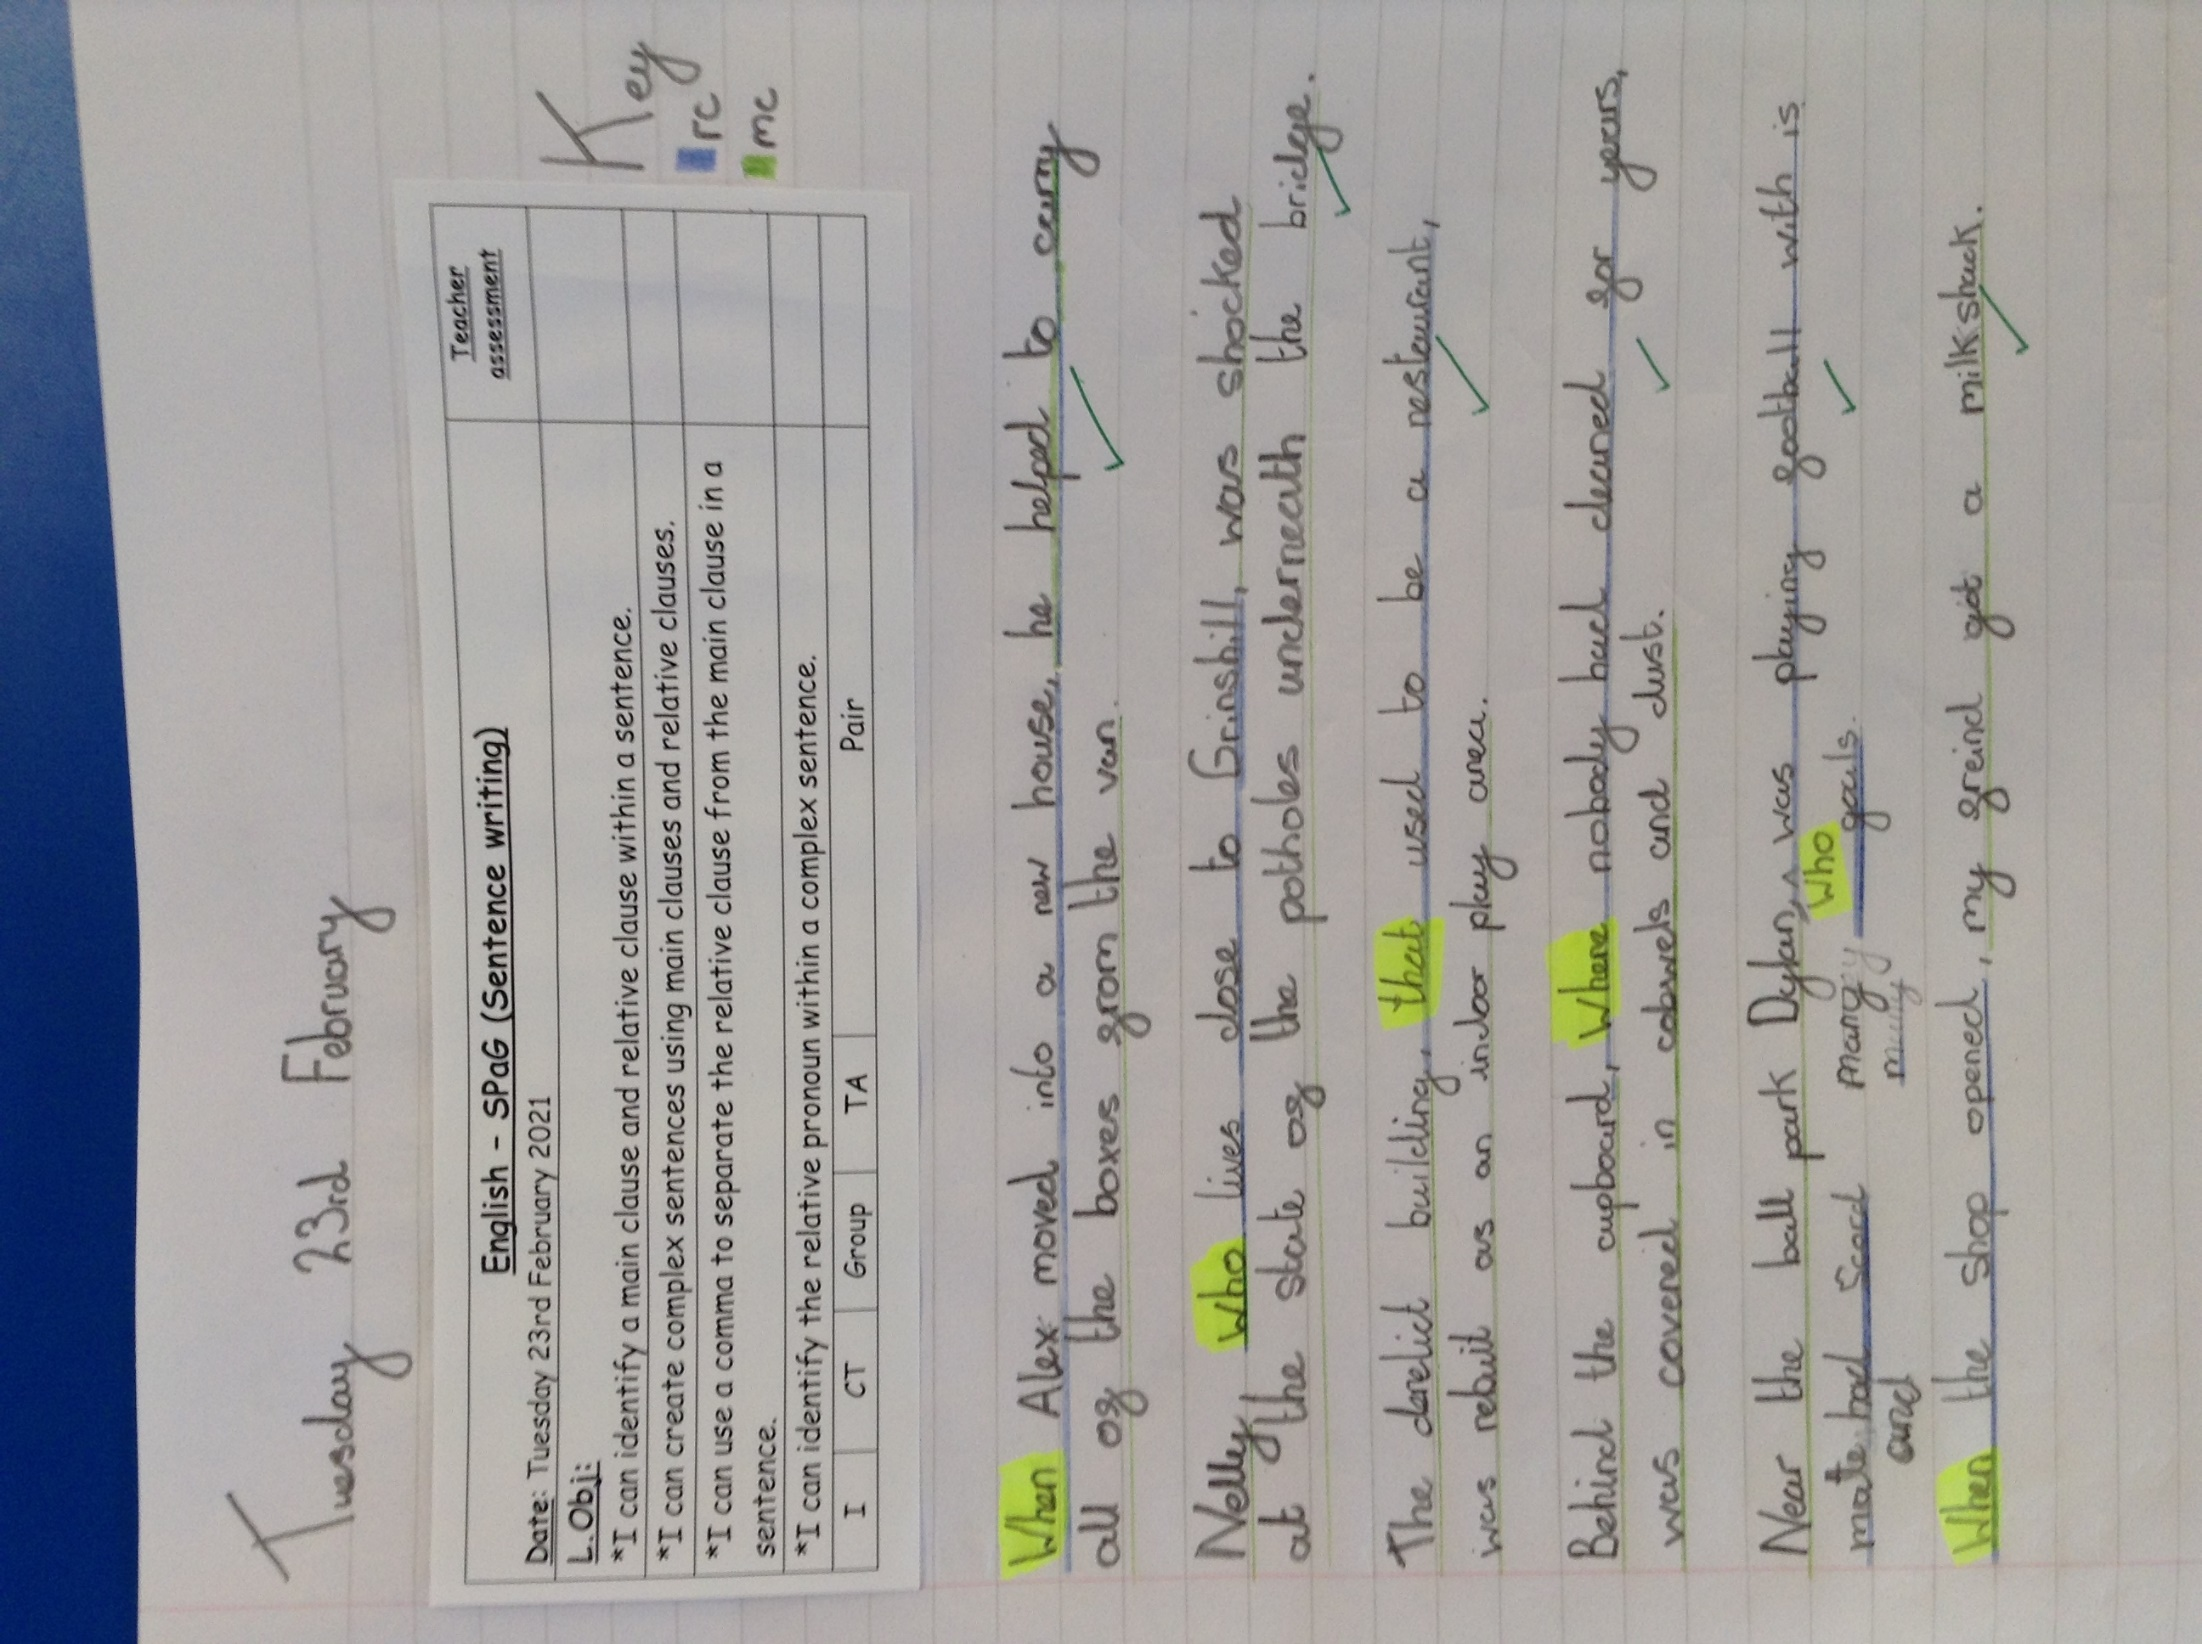 Tuesday 23rd February
English - SPaG (Sentence writing)
Teacher assessment
Date: Tuesday 23rd February 2021
L.Obj:
*I can identify a main clause and relative clause within a sentence.
*I can create complex sentences using main clauses and relative clauses.
*I can use a comma to separate the relative clause from the main clause in a
sentence.
*I can identify the relative pronoun within a complex sentence.
I CT Group TA Pair
Key
rc
mc
When Alex moved into a new house, he helped to carry
all of the boxes from the van.
Nelly who lives close to Grinshill, was shocked
at the state of the potholes underneath the bridge.
The derelict building, that used to be a resteurant,
was rebuit as an indoor play area.
Behind the cupboard, where nobody had cleaned for years,
was covered in cobwebs and dust.
Near the ball park Dylan, was playing football with is
who
mate had Scord many goals.
and
When the shop opened, my freind got a milkshack.